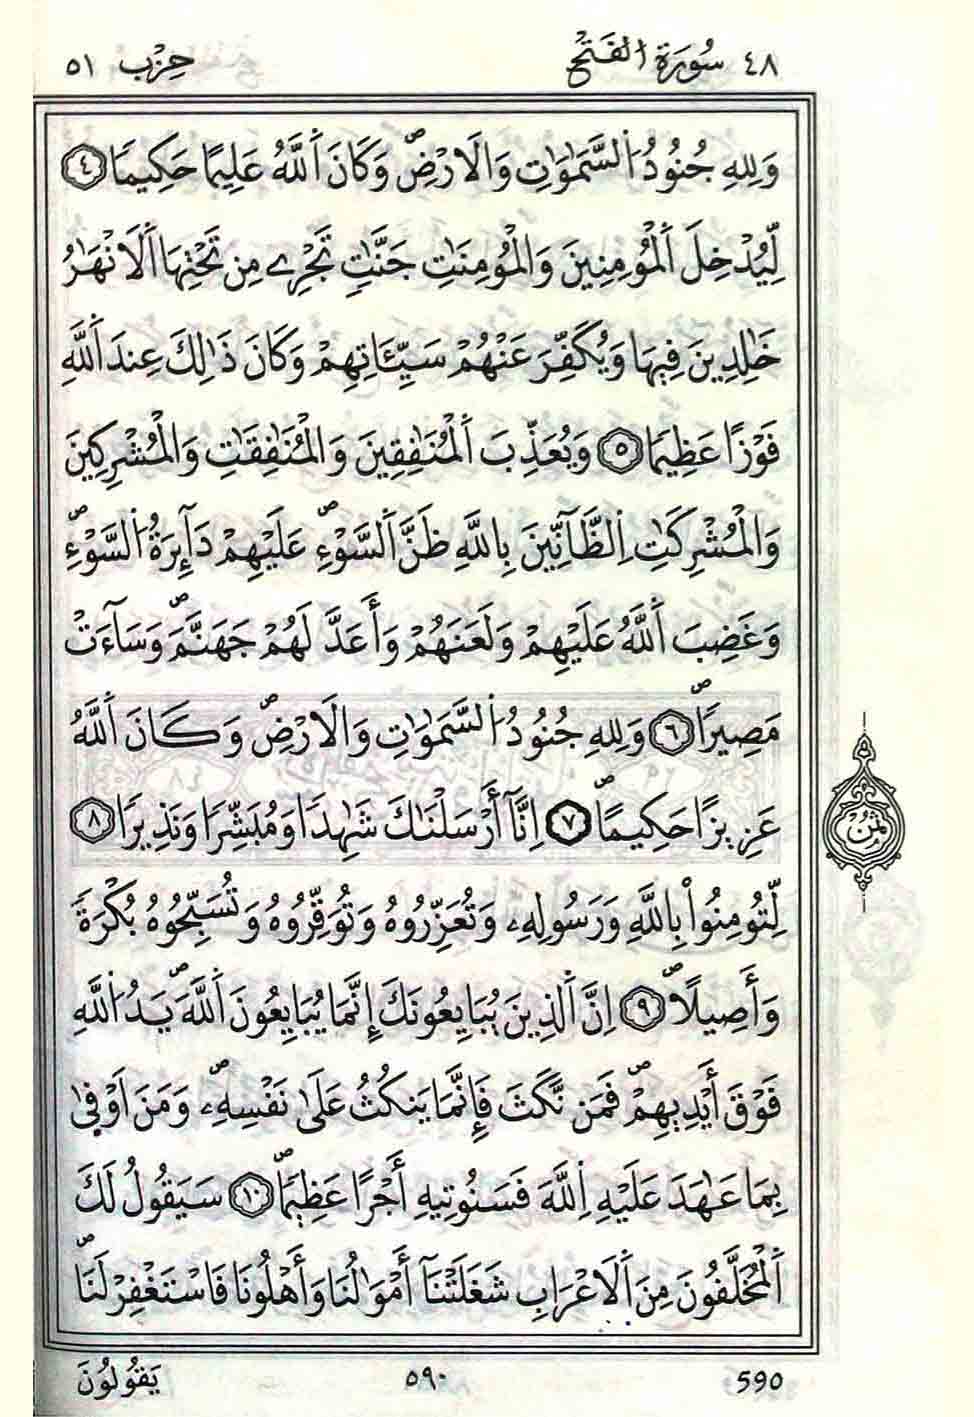 ٤٨ سُورَةُ الفَتْحِ حِزْب ٥١
وَلِلهِ جُنُودُ اُ۬لسَّمَٰوَٰتِ وَالَارْضِۖ وَكَانَ اَ۬للَّهُ عَلِيماً حَكِيماً ٤
لِّيُدْخِلَ اَ۬لْمُومِنِينَ وَالْمُومِنَٰتِ جَنَّٰتٖ تَجْرِے مِن تَحْتِهَا اَ۬لَانْهَٰرُ
خَٰلِدِينَ فِيهَا وَيُكَفِّرَ عَنْهُمْ سَيِّـَٔاتِهِمْ وَكَانَ ذَٰلِكَ عِندَ اَ۬للَّهِ
فَوْزاً عَظِيماً ٥ وَيُعَذِّبَ اَ۬لْمُنَٰفِقِينَ وَالْمُنَٰفِقَٰتِ وَالْمُشْرِكِينَ
وَالْمُشْرِكَٰتِ اِ۬لظَّآنِّينَ بِاللَّهِ ظَنَّ اَ۬لسَّوْءِۖ عَلَيْهِمْ دَآئِرَةُ اُ۬لسَّوْءِۖ
وَغَضِبَ اَ۬للَّهُ عَلَيْهِمْ وَلَعَنَهُمْ وَأَعَدَّ لَهُمْ جَهَنَّمَۖ وَسَآءَتْ
مَصِيراًۖ ٦ وَلِلهِ جُنُودُ اُ۬لسَّمَٰوَٰتِ وَالَارْضِۖ وَكَانَ اَ۬للَّهُ
عَزِيزاً حَكِيماًۖ ٧ اِنَّآ أَرْسَلْنَٰكَ شَٰهِداً وَمُبَشِّراً وَنَذِيراً ٨
لِّتُومِنُواْ بِاللَّهِ وَرَسُولِهِۦ وَتُعَزِّرُوهُ وَتُوَقِّرُوهُ وَتُسَبِّحُوهُ بُكْرَةً
وَأَصِيلاًۖ ٩ اِنَّ اَ۬لذِينَ يُبَايِعُونَكَ إِنَّمَا يُبَايِعُونَ اَ۬للَّهَۖ يَدُ اُ۬للَّهِ
فَوْقَ أَيْدِيهِمْۖ فَمَن نَّكَثَ فَإِنَّمَا يَنكُثُ عَلَىٰ نَفْسِهِۦۖ وَمَنَ اَوْفىٰ
بِمَا عَٰهَدَ عَلَيْهِ اِ۬للَّهَ فَسَنُوتِيهِ أَجْراً عَظِيماًۖ ١٠ سَيَقُولُ لَكَ
اَ۬لْمُخَلَّفُونَ مِنَ اَ۬لَاعْرَابِ شَغَلَتْنَآ أَمْوَٰلُنَا وَأَهْلُونَا فَاسْتَغْفِرْ لَنَاۖ
ثُمُن
يَقُولُونَ ٥٩٠ 590